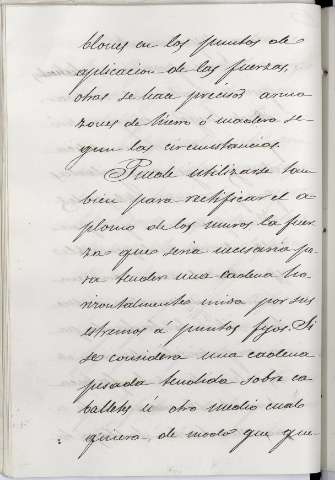 blones en los puntos de
aplicacion de las fuerzas,
otras se hace preciso arma
zones de hierro ó madera se-
gun las circunstancias.
Puede utilizarse tam
bien para rectificar el a
plomo de los muros la fuer
za que seria necesaria pa-
ra tender una cadena ho
rizontalmente unida por sus
estremos á puntos fijos. Si
se considera una cadena
pesada tendida sobre ca
balletes ú otro medio cual
quiera, de modo que que